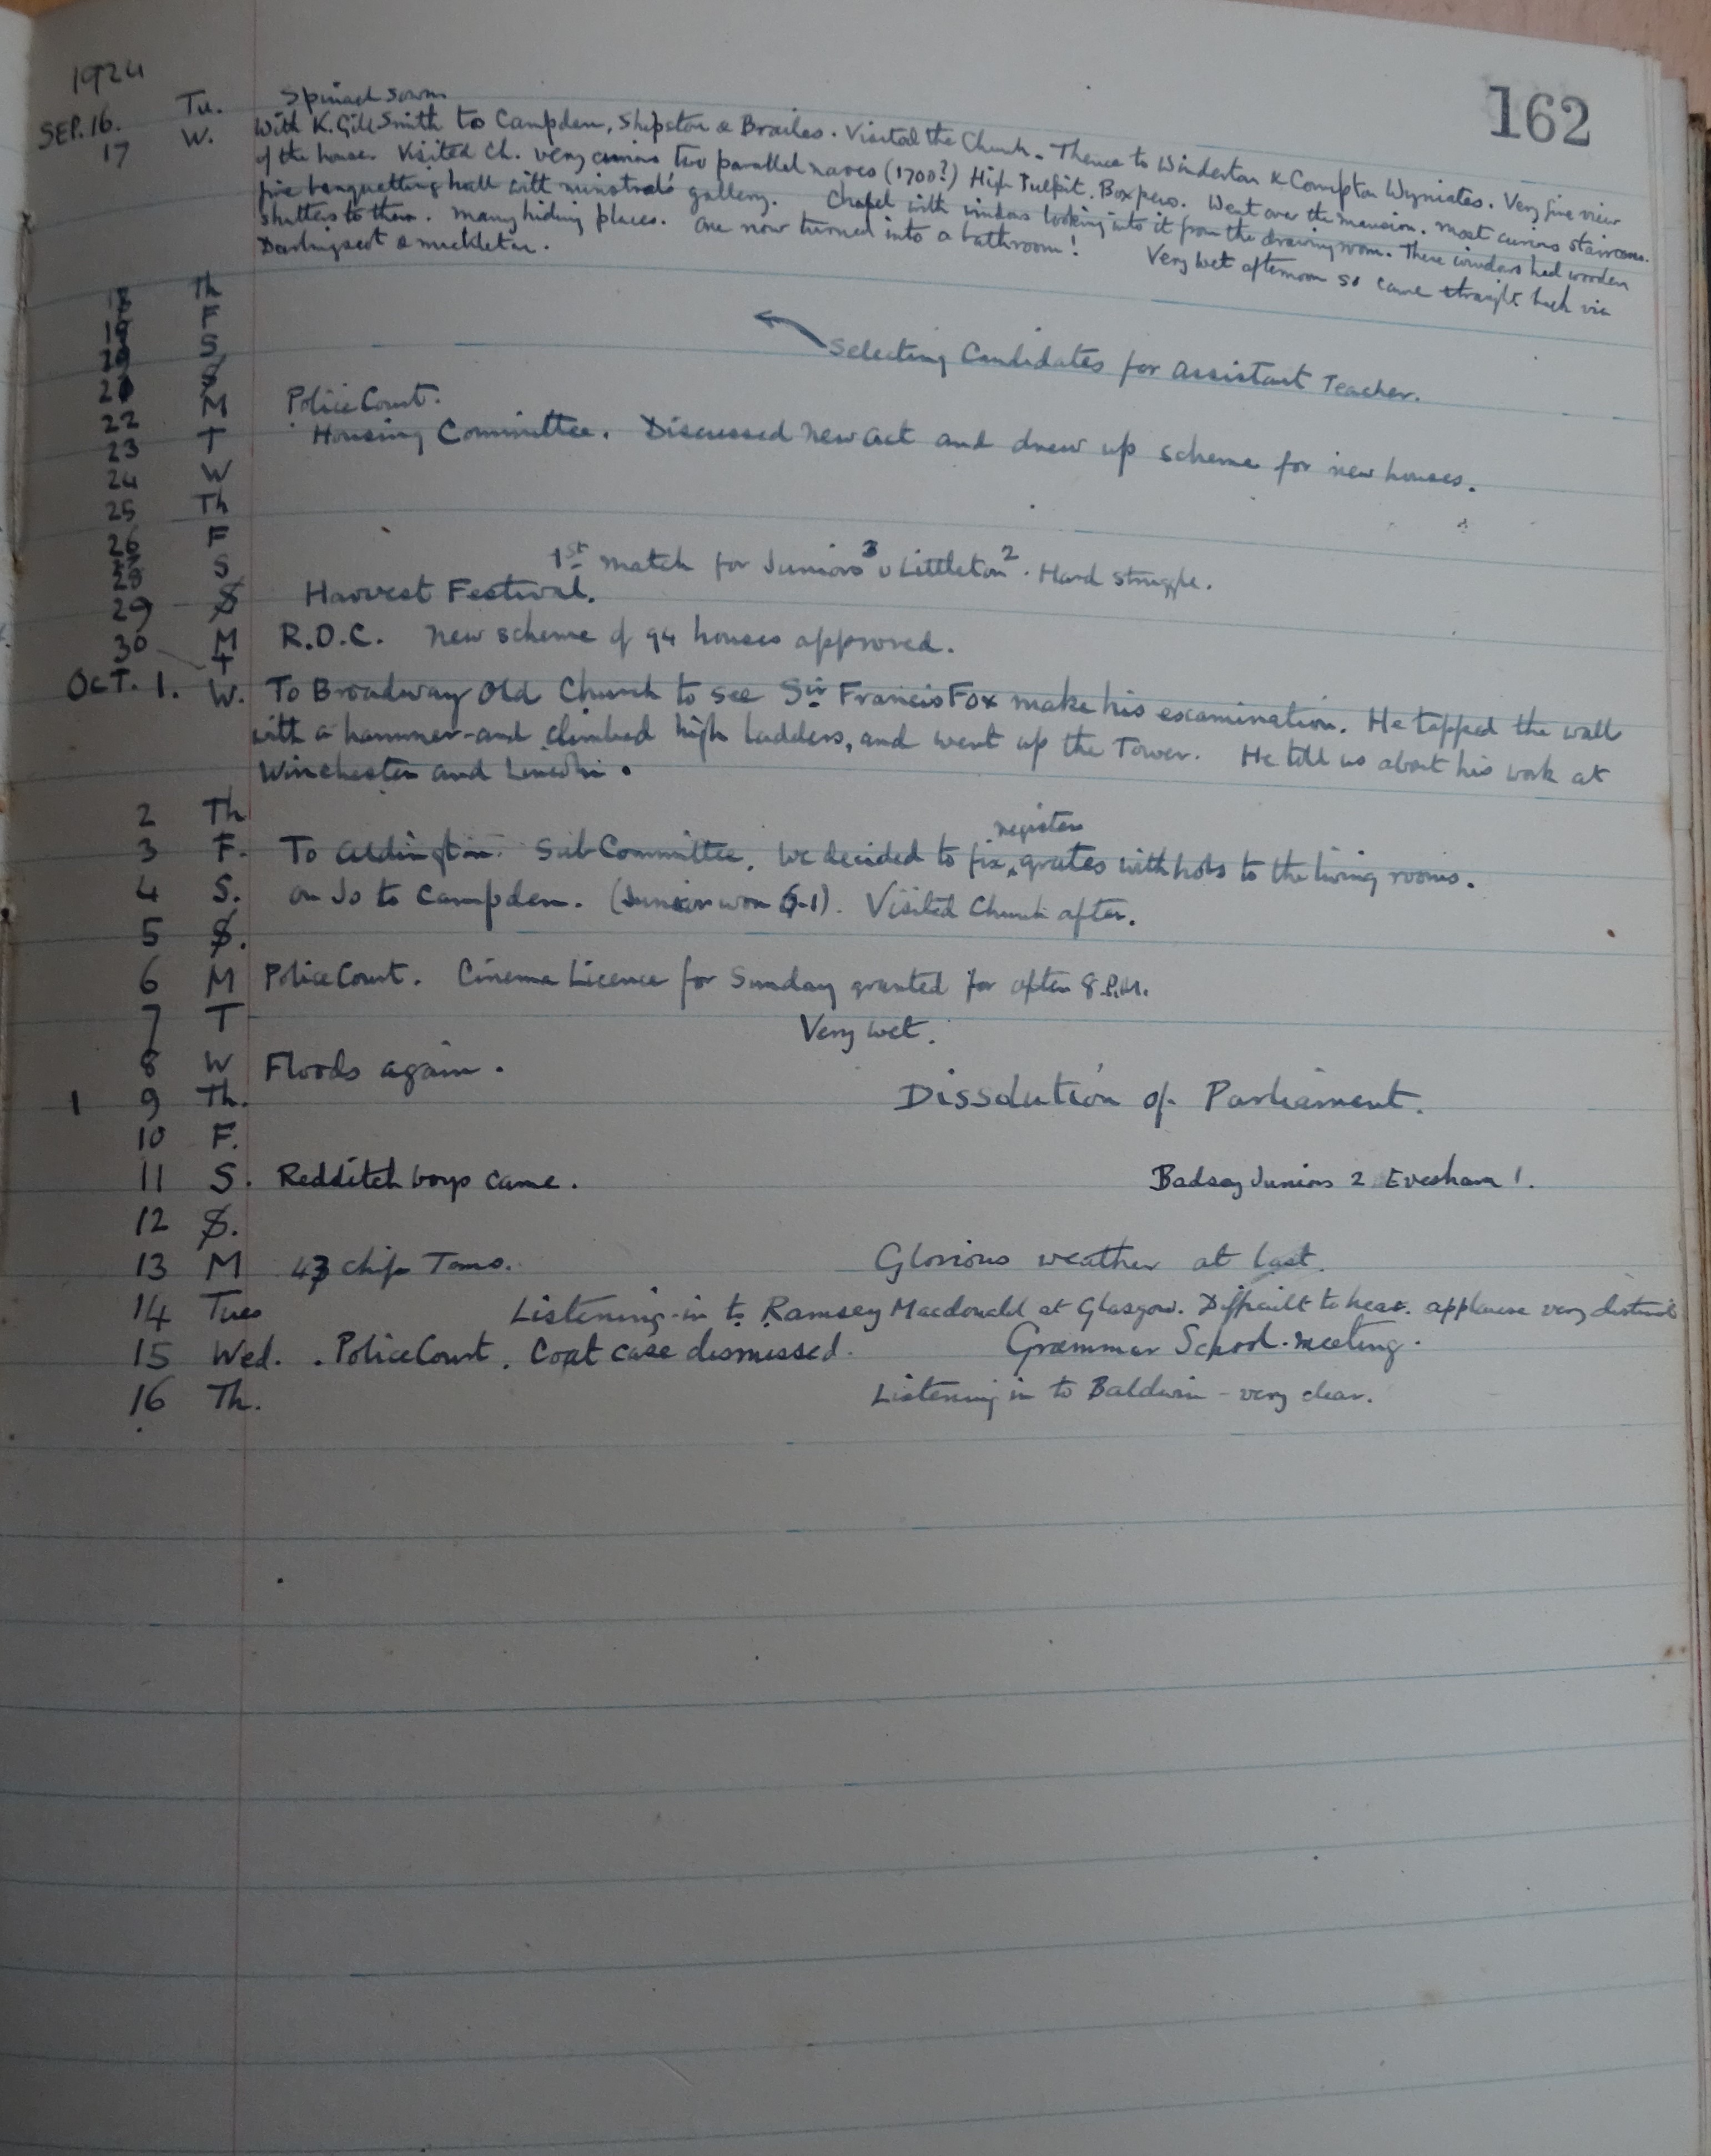 162
1924
SEP. 16. Tu. Spinach sown
17 W. With K. Gill Smith to Campden, Shipston & Brailes. Visited the Church. Thence to Winderton & Compton Wyniates. Very fine view
of the house. Visited Ch. very curious two parallel naves (1700?) High Pulpit. Box pews. Went over the mansion. Most curious staircases.
fine banquetting hall with minstrals' gallery. Chapel with windows looking into it from the drawing room. These windows had wooden
shutters to them. Many hiding places. One now turned into a bathroom! Very wet afternoon so came straight back via
Darlingscot & Mickleton.
18 Th
19 F
20 S Selecting Candidates for Assistant Teacher.
21 S
22 M Police Court.
23 T Housing Committee. Discussed new Act and drew up scheme for new houses.
24 W
25 Th
26 F
S 1st match for Juniors 3 v Littleton 2. Hard struggle.
28 S Harvest Festival.
29 M R.D.C. New scheme of 94 houses approved.
30 T
OCT. 1. W. To Broadway Old Church to see Sir Francis Fox make his examination. He tapped the wall
with a hammer and climbed high ladders, and went up the Tower. He told us about his work at
Winchester and Lincoln.
2 Th
3 F. To Aldington. Sub Committee. We decided to fix register grates with hobs to the living rooms.
4 S. on Jo to Campden. (Juniors won 6-1). Visited Church after.
5 S.
6 M Police Court. Cinema Licence for Sunday granted for after 8 P.M.
7 T Very wet.
8 W Floods again.
1 9 Th. Dissolution of Parliament.
10 F.
11 S. Redditch boys came. Badsey Juniors 2 Evesham 1.
12 S.
13 M 43 chips Toms. Glorious weather at last.
14 Tues Listening-in to Ramsey Macdonald at Glasgow. Difficult to hear. applause very distinct
15 Wed. Police Court. Coat case dismissed. Grammar School meeting.
16 Th. Listening in to Baldwin - very clear.